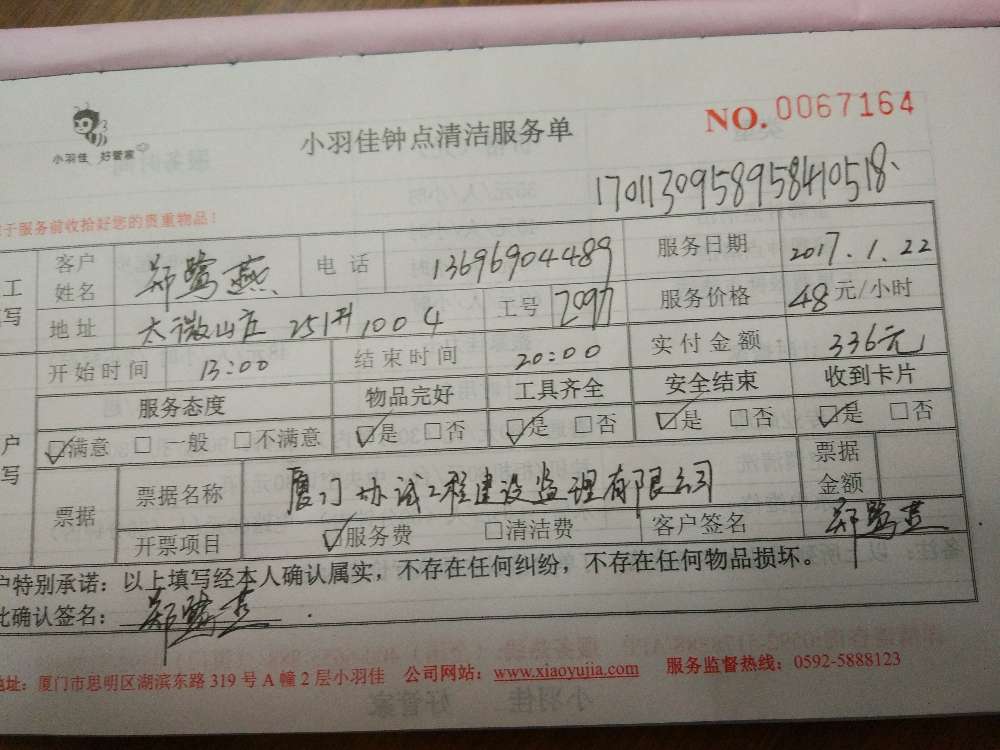 小羽佳 好管家
小羽佳钟点清洁服务单
NO.0067164
1701130958958410518
子服务前收拾好您的贵重物品!
工 客户姓名 郑鹭燕 电话 13696904489 服务日期 2017.1.22
写 地址 太微山庄 251# 1004 工号 7097 服务价格 48元/小时
开始时间 13:00 结束时间 20:00 实付金额 336元
服务态度 物品完好 工具齐全 安全结束 收到卡片
户 ☑满意 □一般 □不满意 ☑是 □否 ☑是 □否 ☑是 □否 ☑是 □否
写 票据 票据名称 厦门协诚工程建设监理有限公司 票据金额
开票项目 ☑服务费 □清洁费 客户签名 郑鹭燕
户特别承诺:以上填写经本人确认属实,不存在任何纠纷,不存在任何物品损坏。
此确认签名: 郑鹭燕
地址:厦门市思明区湖滨东路319号A幢2层小羽佳 公司网站:www.xiaoyujia.com 服务监督热线:0592-5888123